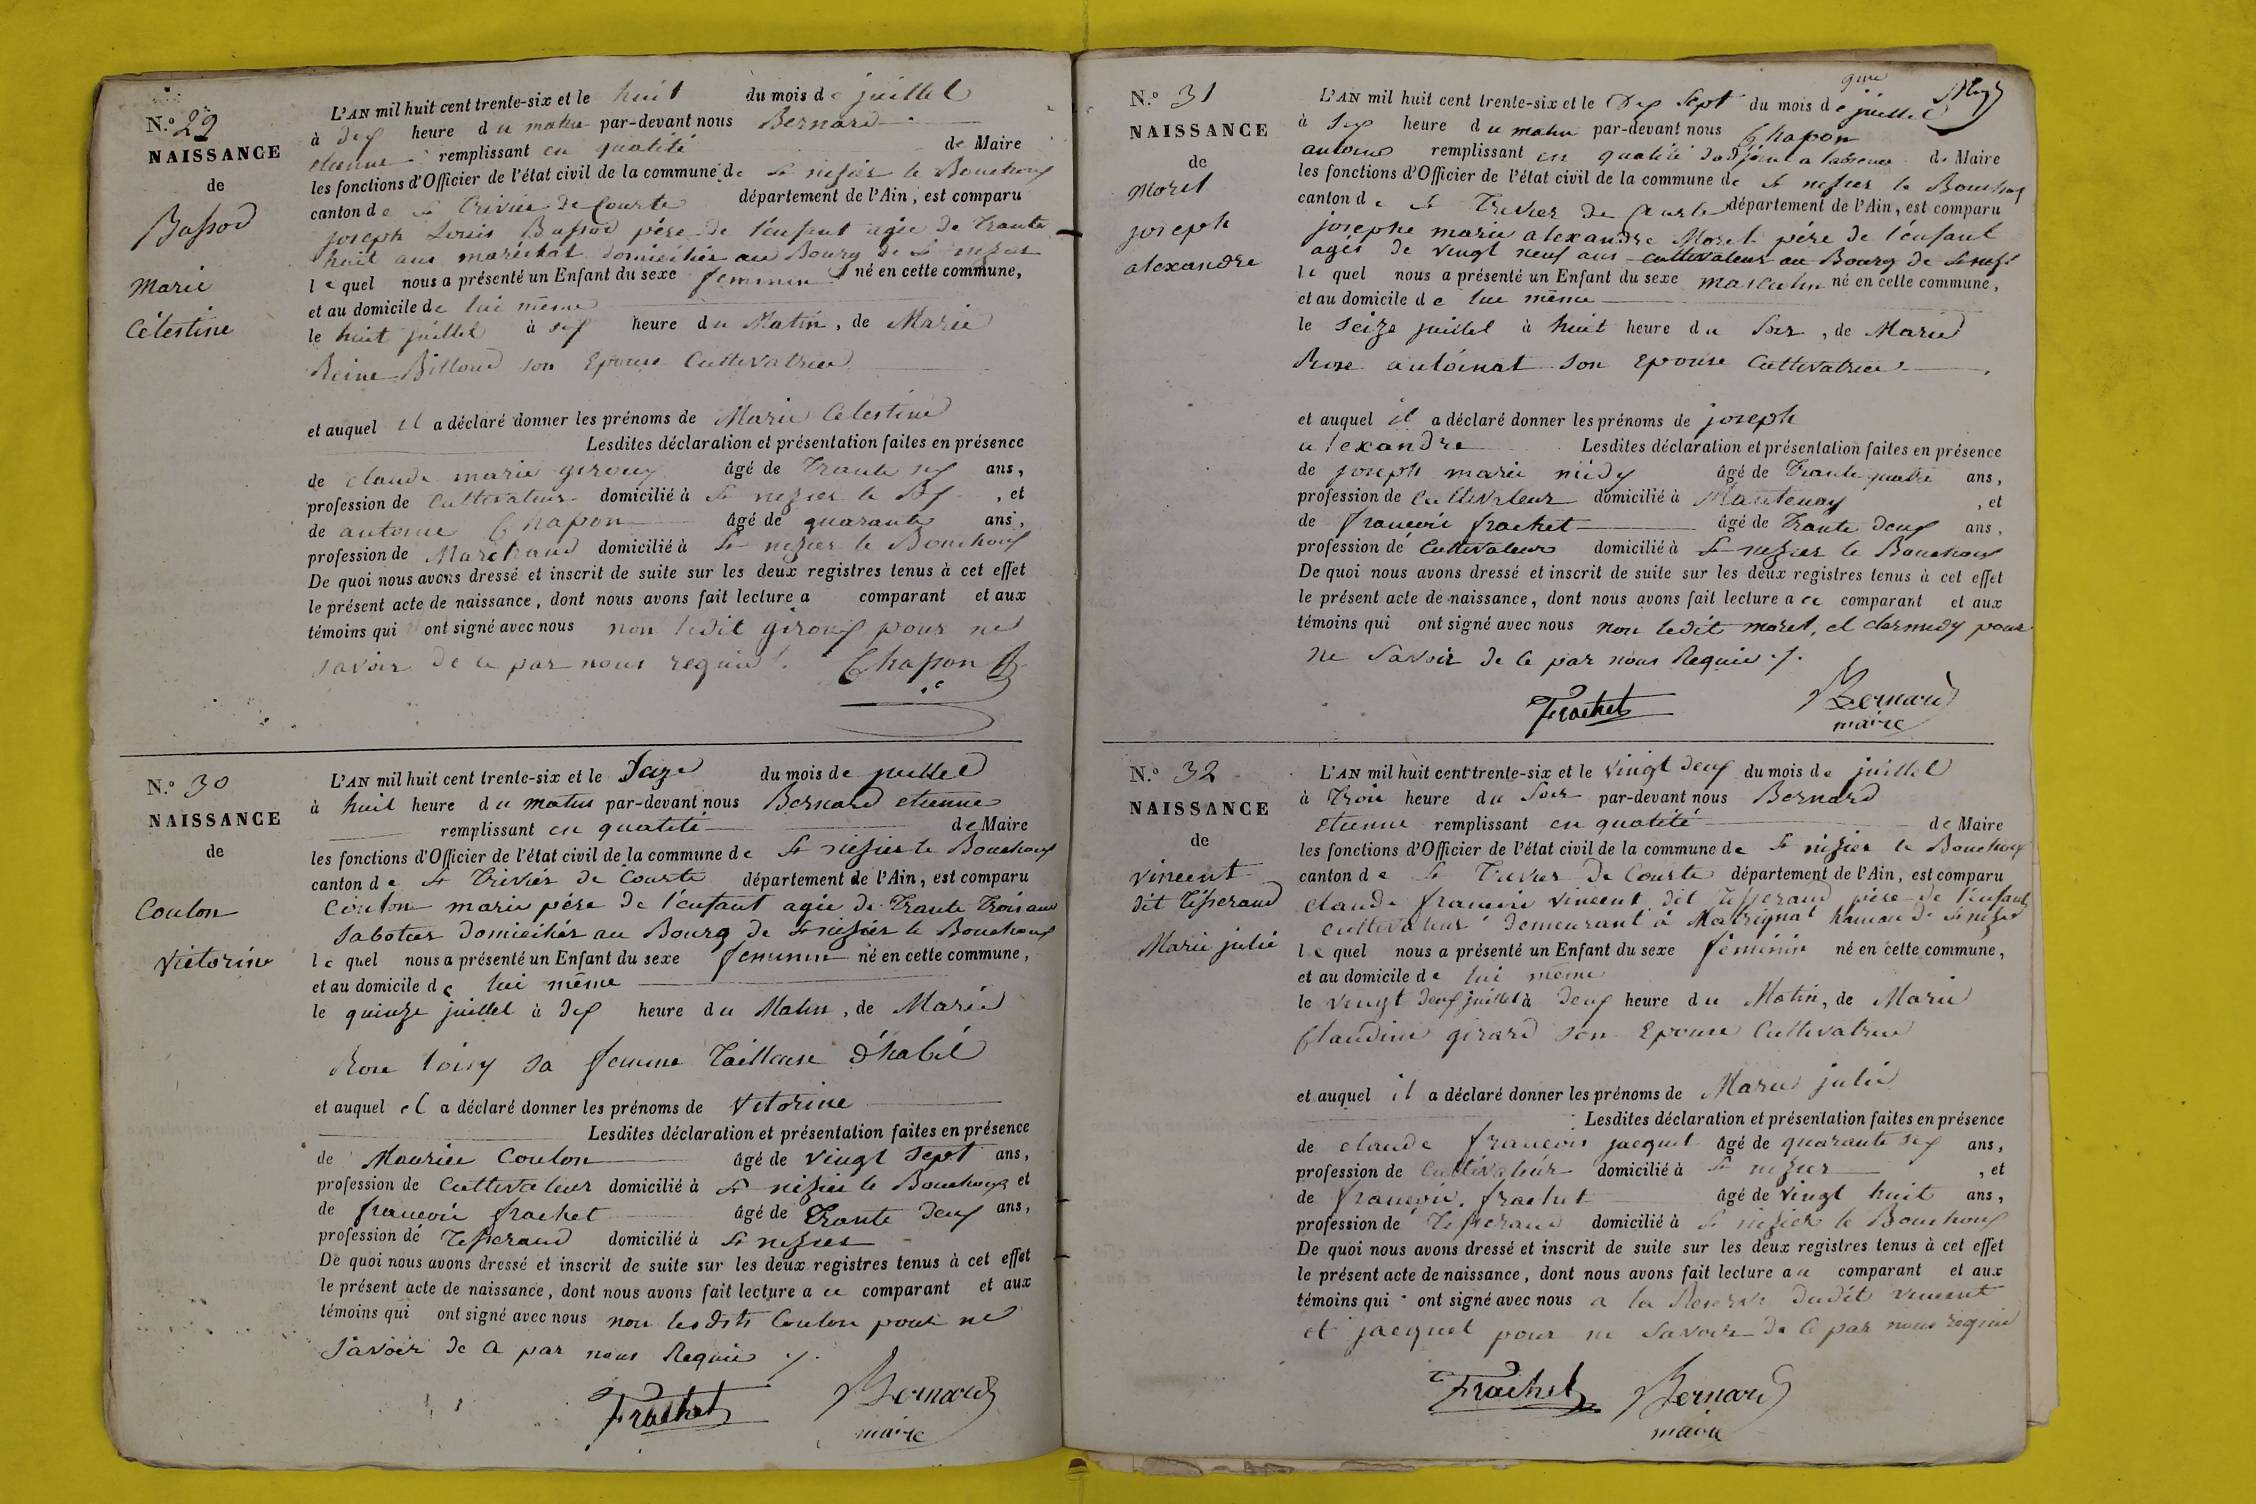 N.º 29
NAISSANCE
de
Bassod
Marie
Célestine
L'AN mil huit cent trente-six et le huit du mois de juillet
à dix heure du matin par-devant nous Bernard
etienne remplissant en qualité de Maire
les fonctions d'Officier de l'état civil de la commune de St nizier le Bouchoux
canton de St Trivier de Courte département de l'Ain, est comparu
joseph Louis Bassod pére de l'enfant agée de Trante
huit ans maréchal domicilier au Bourg de St nizier
le quel nous a présenté un Enfant du sexe feminin né en cette commune,
et au domicile de lui même
le huit juillet à six heure du Matin, de Marie
Reine Billoud son Epouse Cultivatrice
et auquel il a déclaré donner les prénoms de Marie Célestine
Lesdites déclaration et présentation faites en présence
de claude marie giroux âgé de Trante six ans,
profession de Cultivateur domicilié à St nizier le Bx, et
de antoine Chapon âgé de quarante ans,
profession de Marchand domicilié à St nizier le Bouchoux
De quoi nous avons dressé et inscrit de suite sur les deux registres tenus à cet effet
le présent acte de naissance, dont nous avons fait lecture a comparant et aux
témoins qui ont signé avec nous non ledit giroux pour ne
savoir de ce par nous requis ./.
Chapon
N.º 30
NAISSANCE
de
Coulon
Victorine
L'AN mil huit cent trente-six et le Seize du mois de juillet
à huit heure du matin par-devant nous Bernard etienne
remplissant en qualité de Maire
les fonctions d'Officier de l'état civil de la commune de St nizier le Bouchoux
canton de St Trivier de Courte département de l'Ain, est comparu
Coulon marie pére de l'enfant agée de Trante Trois ans
Sabotier domicilier au Bourg de St nizier le Bouchoux
le quel nous a présenté un Enfant du sexe feminin né en cette commune,
et au domicile de lui même
le quinze juillet à dix heure du Matin, de Marie
Rose Loisy sa femme Tailleuse d'habit
et auquel il a déclaré donner les prénoms de Vitorine
Lesdites déclaration et présentation faites en présence
de Maurice Coulon âgé de vingt sept ans,
profession de Cultivateur domicilié à St nizier le Bouchoux et
de francois frachet âgé de Trante deux ans,
profession de Tisserand domicilié à St nizier
De quoi nous avons dressé et inscrit de suite sur les deux registres tenus à cet effet
le présent acte de naissance, dont nous avons fait lecture a ce comparant et aux
témoins qui ont signé avec nous non les dits Coulon pour ne
Savoir de ce par nous Requis ./.
Frachet Bernard
maire
N.º 31
NAISSANCE
de
Morel
joseph
alexandre
L'AN mil huit cent trente-six et le Dix Sept du mois de juillet
à Six heure du matin par-devant nous Chapon
antoine remplissant en qualité dadjoint a labsence de Maire
les fonctions d'Officier de l'état civil de la commune de St nizier le Bouchoux
canton de St Trivier de Courte département de l'Ain, est comparu
josephe marie alexandre Morel pére de l'enfant
agés de vingt neuf ans cultivateur au Bourg de St nizi
le quel nous a présenté un Enfant du sexe masculin né en cette commune,
et au domicile de lui même
le seize juillet à huit heure du Soir, de Marie
Rose antoinat son Epouse Cultivatrice
et auquel il a déclaré donner les prénoms de joseph
alexandre Lesdites déclaration et présentation faites en présence
de joseph marie midy âgé de Trante quatre ans,
profession de Cultivateur domicilié à Mantenay, et
de francois frachet âgé de Trante deux ans,
profession de Cultivateur domicilié à St nizier le Bouchoux
De quoi nous avons dressé et inscrit de suite sur les deux registres tenus à cet effet
le présent acte de naissance, dont nous avons fait lecture a ce comparant et aux
témoins qui ont signé avec nous non ledit morel, et pour
ne Savoir de ce par nous Requis ./.
Frachet Bernard
maire
N.º 32
NAISSANCE
de
vincent
dit Tisserand
Marie julie
L'AN mil huit cent trente-six et le vingt deux du mois de juillet
à Trois heure du Soir par-devant nous Bernard
Etienne remplissant en qualité de Maire
les fonctions d'Officier de l'état civil de la commune de St nizier le Bouchoux
canton de St Trivier de Courte département de l'Ain, est comparu
claude francois vincent dit Tisserand pére de l'enfant
cultivateur demeurant à hamau de St nizier
le quel nous a présenté un Enfant du sexe féminin né en cette commune,
et au domicile de lui même
le vingt deux juillet à deux heure du Matin, de Marie
Claudine girard son Epouse Cultivatrice
et auquel il a déclaré donner les prénoms de Marie julie
Lesdites déclaration et présentation faites en présence
de claude francois jacquet âgé de quarante six ans,
profession de Cultivateur domicilié à St nizier, et
de francois frachet âgé de vingt huit ans,
profession de Tisserand domicilié à St nizier le Bouchoux
De quoi nous avons dressé et inscrit de suite sur les deux registres tenus à cet effet
le présent acte de naissance, dont nous avons fait lecture a ce comparant et aux
témoins qui ont signé avec nous a la Reserve dudit vincent
et jacquet pour ne Savoir de ce par nous requis
Frachet Bernard
maire